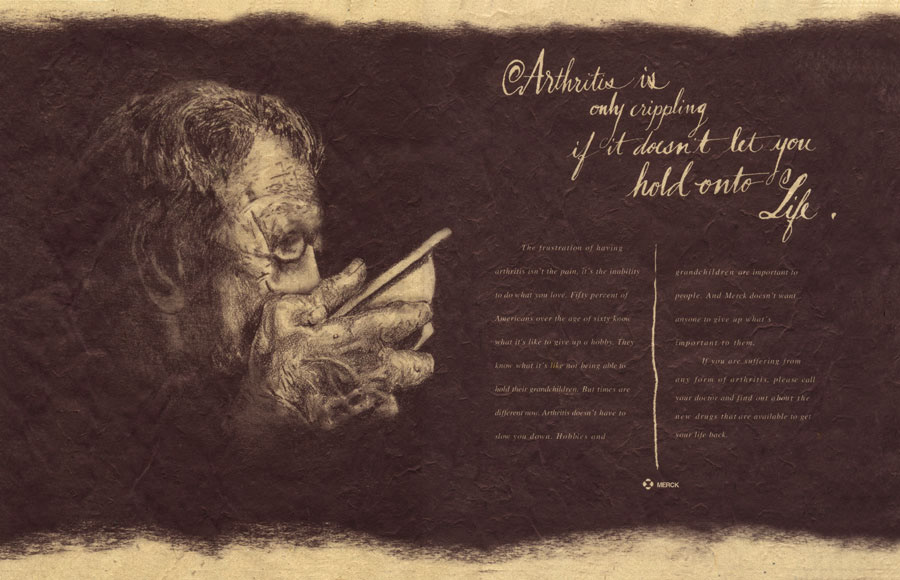 Arthritis is
only crippling
if it doesn't let you
hold onto
Life.
The frustration of having
arthritis isn't the pain, it's the inability
to do what you love. Fifty percent of
Americans over the age of sixty know
what it's like to give up a hobby. They
know what it's like not being able to
hold their grandchildren. But times are
different now. Arthritis doesn't have to
slow you down. Hobbies and
grandchildren are important to
people. And Merck doesn't want
anyone to give up what's
important to them.
If you are suffering from
any form of arthritis, please call
your doctor and find out about the
new drugs that are available to get
your life back.
MERCK